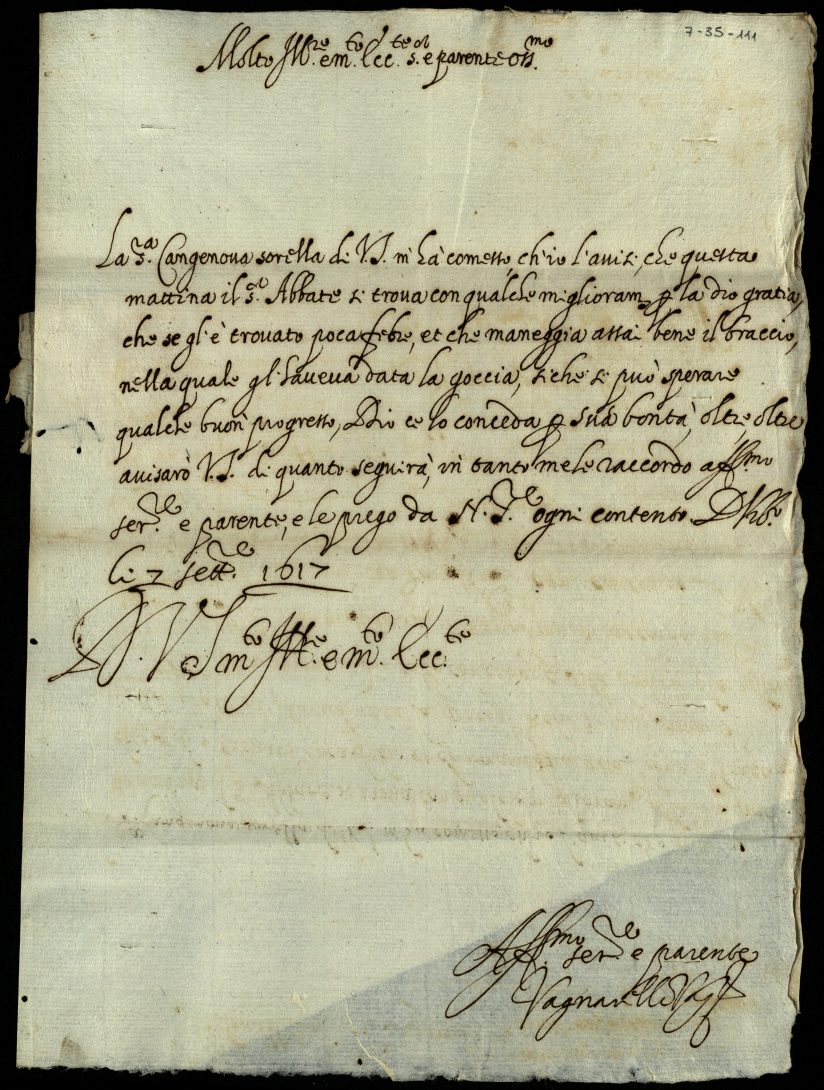 7-35-111
Molto Ill.re e m.to Ecc.te s.r e parente oss.mo
La s.ra Cangenova sorella di V.S. m'hà comesso, ch'io l'avisi, che questa
mattina il s.r Abbate si trova con qualche miglioram.to p la Dio gratia,
che se gl'è trovato poca febre, et che maneggia assai bene il braccio,
nella quale gl'haveva data la goccia, siche si può sperare
qualche buon progresso, Dio ce lo conceda p sua bontà, oltre oltre
avisarò V.S. di quanto seguirà, in tanto me le raccordo aff.mo
ser.re e parente, e le prego da N.S.re ogni contento. D'
li 7 sett.re 1617
D. V S m.to Ill.re e m.to Ecc.te
Aff.mo ser.re e parente
Vagnarelli